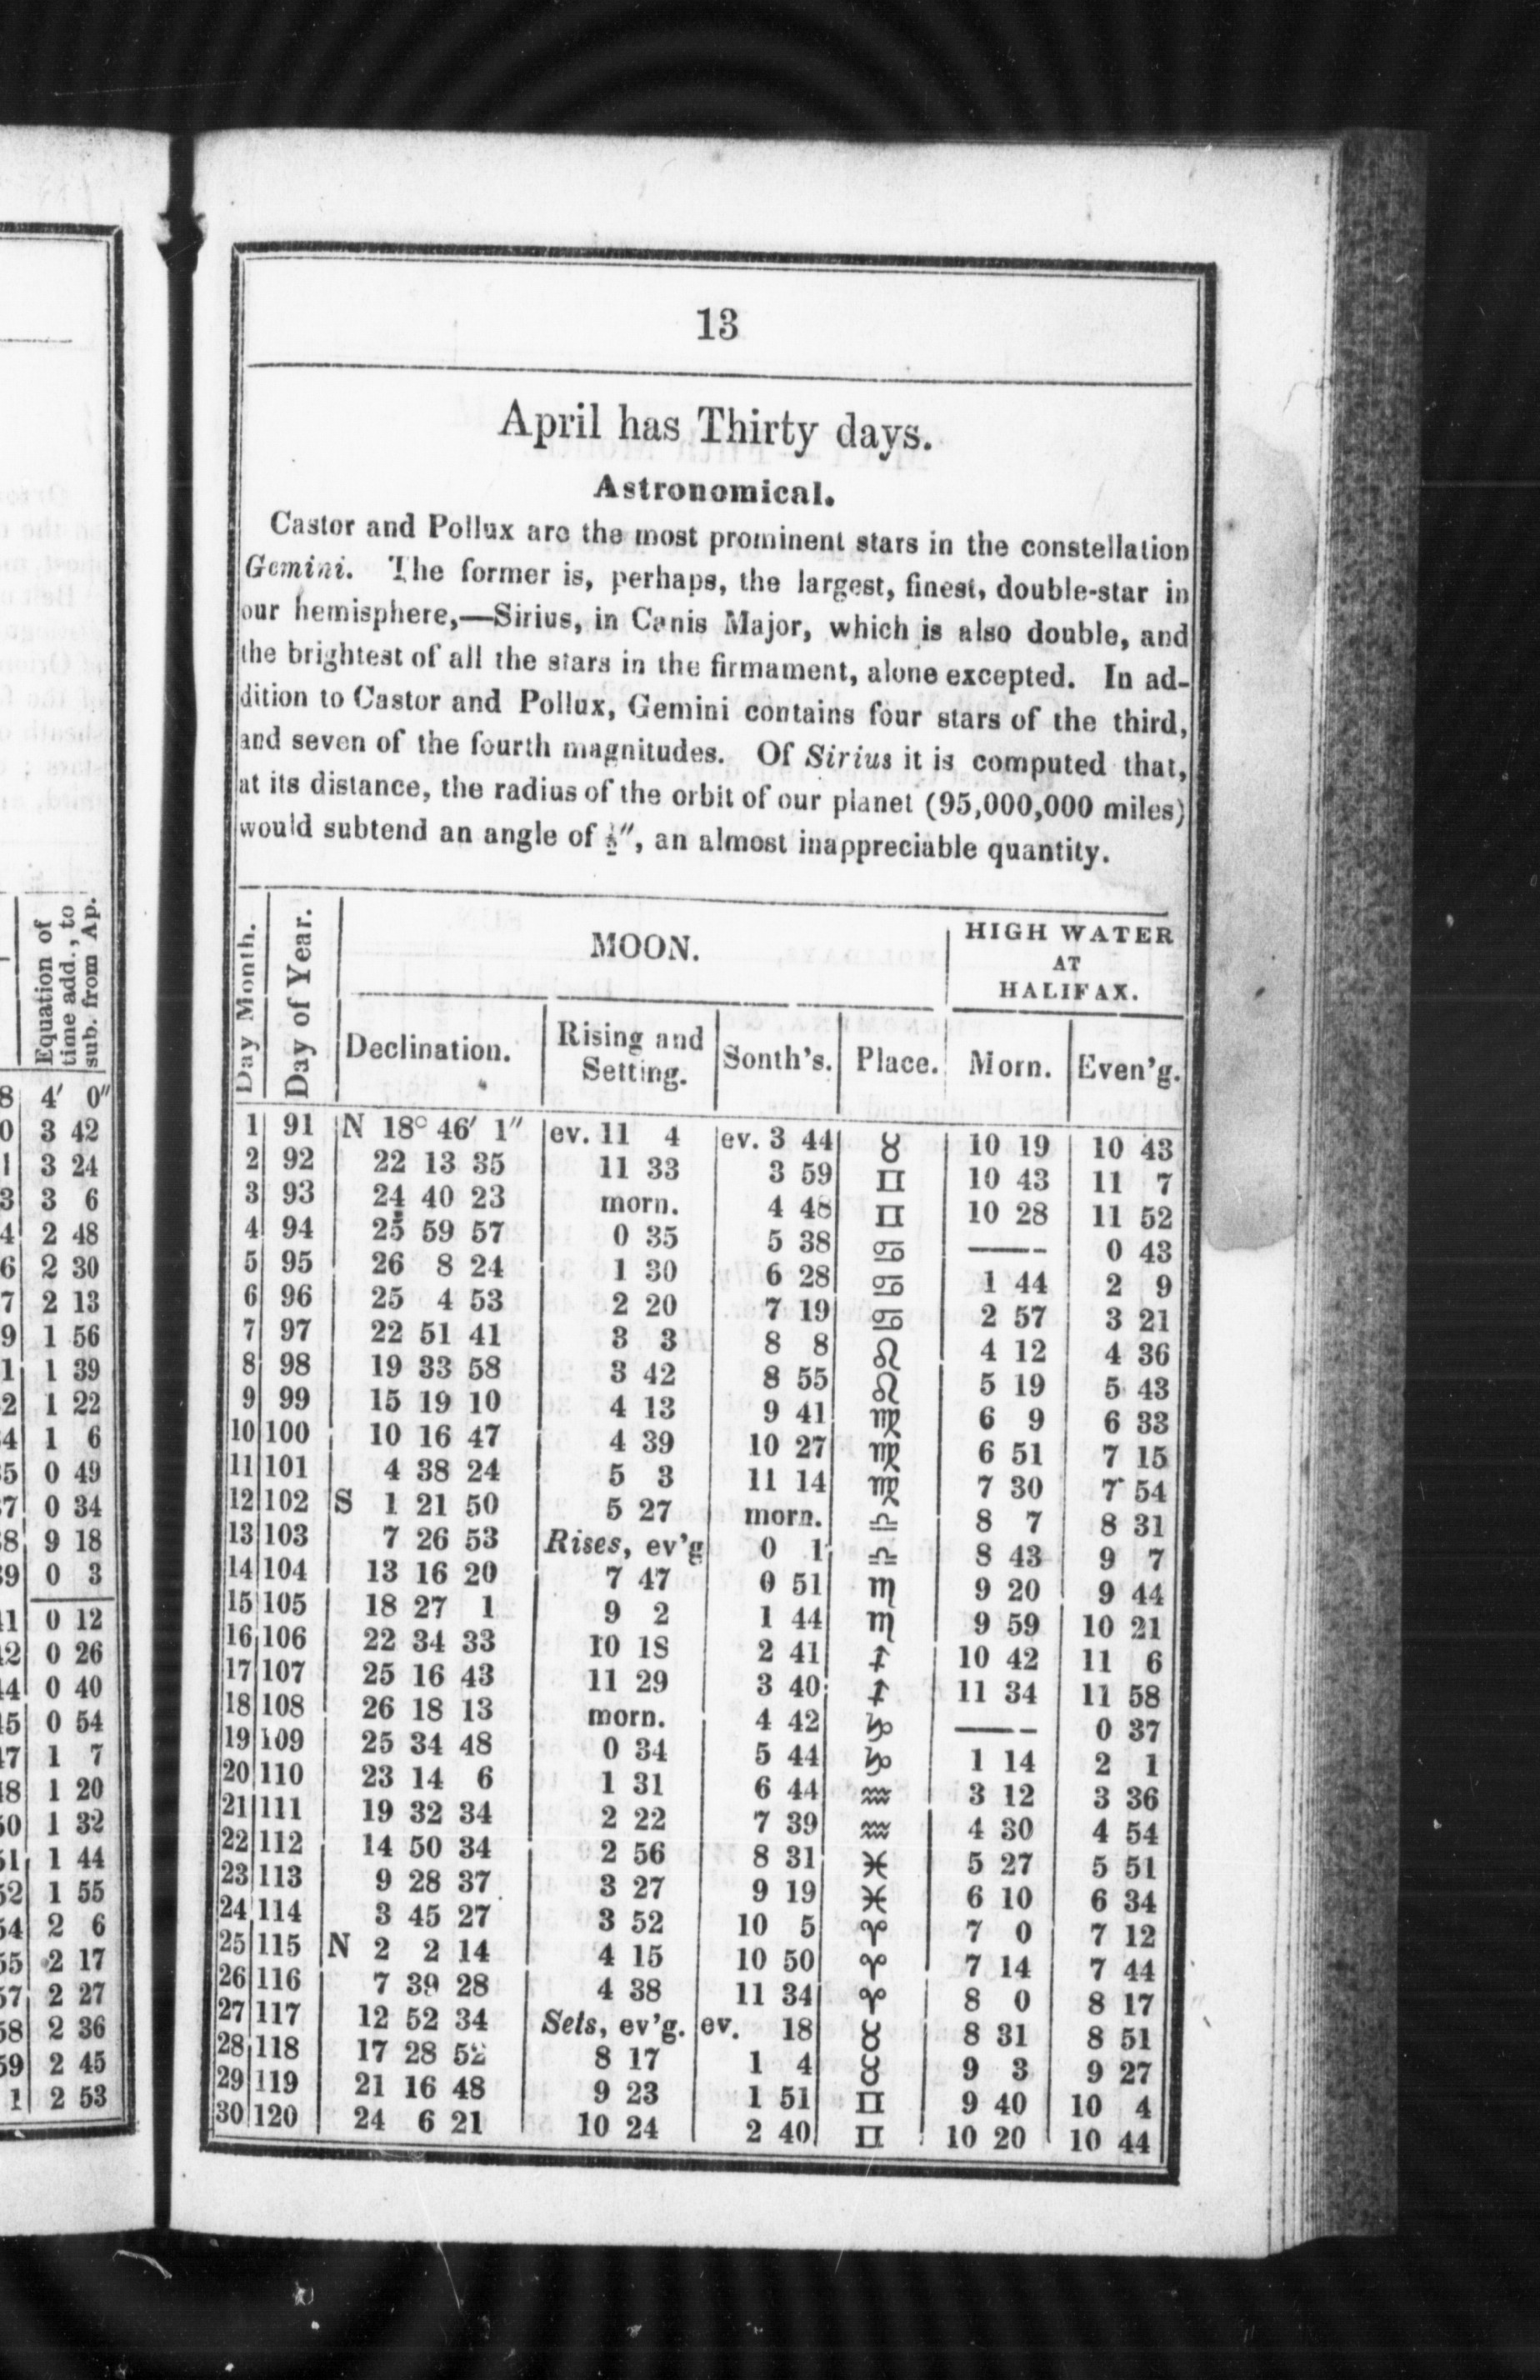 13
April has Thirty days.
Astronomical.
Castor and Pollux are the most prominent stars in the constellation
Gemini. The former is, perhaps, the largest, finest, double-star in
our hemisphere,—Sirius, in Canis Major, which is also double, and
the brightest of all the stars in the firmament, alone excepted. In ad-
dition to Castor and Pollux, Gemini contains four stars of the third,
and seven of the fourth magnitudes. Of Sirius it is computed that,
at its distance, the radius of the orbit of our planet (95,000,000 miles)
would subtend an angle of ″, an almost inappreciable quantity.
Day Month. Day of Year. MOON. HIGH WATER AT HALIFAX.
Declination. Rising and Setting. Sonth's. Place. Morn. Even'g.
1 91 N 18° 46′ 1″ ev. 11 4 ev. 3 44 ♉ 10 19 10 43
2 92 22 13 35 11 33 3 59 ♊ 10 43 11 7
3 93 24 40 23 morn. 4 48 ♊ 10 28 11 52
4 94 25 59 57 0 35 5 38 ♋ —— 0 43
5 95 26 8 24 1 30 6 28 ♋ 1 44 2 9
6 96 25 4 53 2 20 7 19 ♋ 2 57 3 21
7 97 22 51 41 3 3 8 8 ♌ 4 12 4 36
8 98 19 33 58 3 42 8 55 ♌ 5 19 5 43
9 99 15 19 10 4 13 9 41 ♍ 6 9 6 33
10 100 10 16 47 4 39 10 27 ♍ 6 51 7 15
11 101 4 38 24 5 3 11 14 ♍ 7 30 7 54
12 102 S 1 21 50 5 27 morn. ♎ 8 7 8 31
13 103 7 26 53 Rises, ev'g 0 1 ♎ 8 43 9 7
14 104 13 16 20 7 47 0 51 ♏ 9 20 9 44
15 105 18 27 1 9 2 1 44 ♏ 9 59 10 21
16 106 22 34 33 10 18 2 41 ♐ 10 42 11 6
17 107 25 16 43 11 29 3 40 ♐ 11 34 11 58
18 108 26 18 13 morn. 4 42 ♑ —— 0 37
19 109 25 34 48 0 34 5 44 ♑ 1 14 2 1
20 110 23 14 6 1 31 6 44 ♒ 3 12 3 36
21 111 19 32 34 2 22 7 39 ♒ 4 30 4 54
22 112 14 50 34 2 56 8 31 ♓ 5 27 5 51
23 113 9 28 37 3 27 9 19 ♓ 6 10 6 34
24 114 3 45 27 3 52 10 5 ♈ 7 0 7 12
25 115 N 2 2 14 4 15 10 50 ♈ 7 14 7 44
26 116 7 39 28 4 38 11 34 ♈ 8 0 8 17
27 117 12 52 34 Sets, ev'g. ev. 18 ♉ 8 31 8 51
28 118 17 28 52 8 17 1 4 ♉ 9 3 9 27
29 119 21 16 48 9 23 1 51 ♊ 9 40 10 4
30 120 24 6 21 10 24 2 40 ♊ 10 20 10 44
Equation of
time add., to
sub. from Ap.
4′ 0″
3 42
3 24
3 6
2 48
2 30
2 13
1 56
1 39
1 22
1 6
0 49
0 34
9 18
0 3
0 12
0 26
0 40
0 54
1 7
1 20
1 32
1 44
1 55
2 6
2 17
2 27
2 36
2 45
2 53